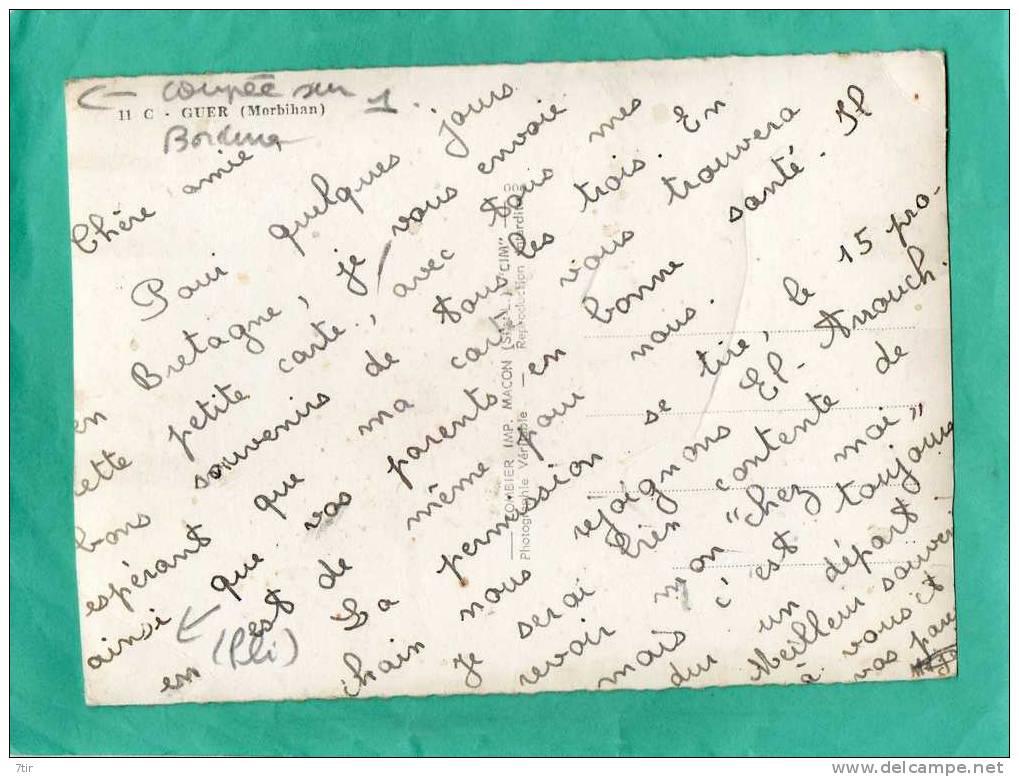 ← coupée sur 1.
11 C - GUER (Morbihan)
Bordure
Chère amie
Pour quelques jours
en Bretagne, je vous envoie
cette petite carte, avec tous mes
bons souvenirs de tous les trois. En
espérant que ma carte vous trouvera
ainsi que vos parents en bonne santé. Il
en est de même pour nous.
La permission se tire, le 15 pro-
chain nous rejoignons El-Arrouch.
Je serai bien contente de
revoir mon "chez moi"
mais c'est toujours
dur un départ
Meilleur souveni
à vous et
vos pare
← (Pli)
COMBIER IMP. MACON (S.-&-L.) "CIM"
Photographie Véritable — Reproduction Interdite
7tir
www.delcampe.net